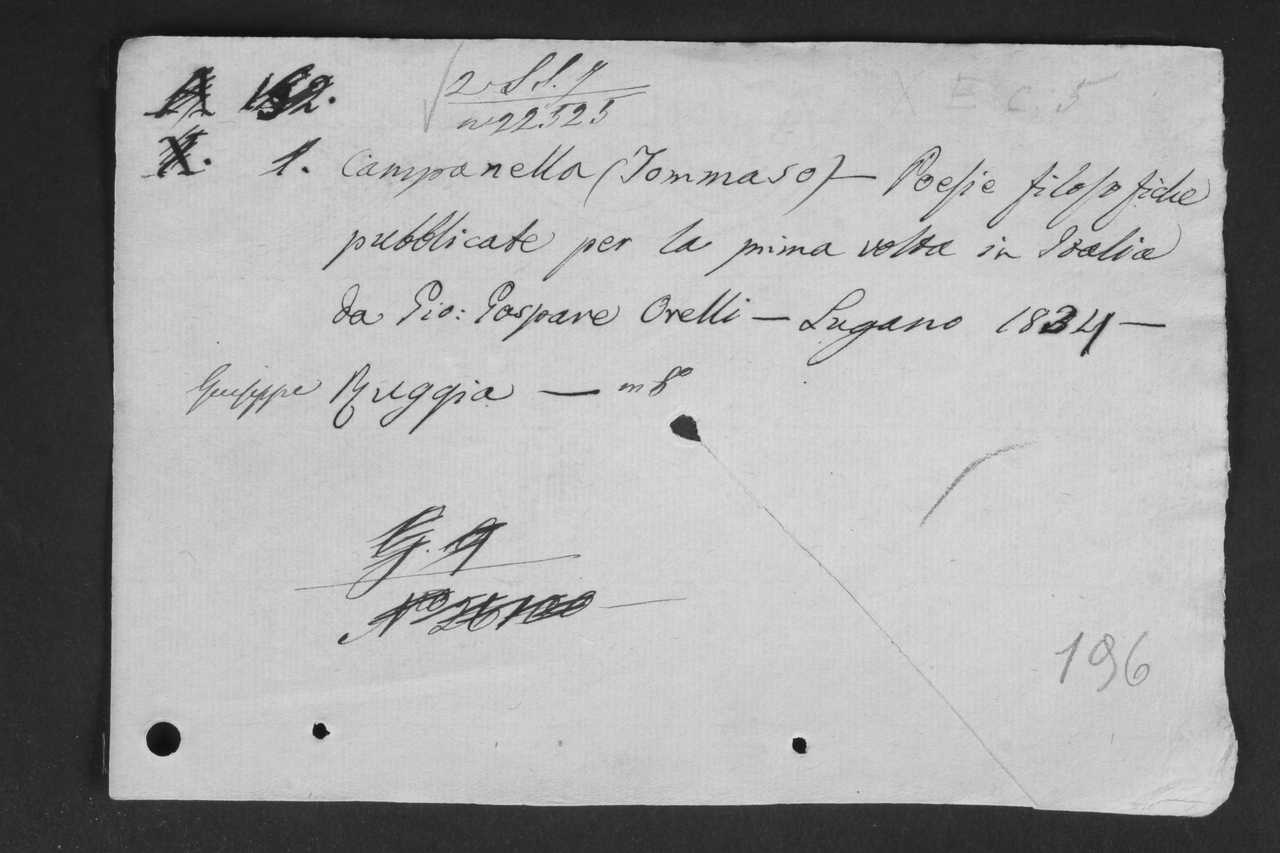 X E c. 5
n° 22525
X. 1. Campanella (Tommaso) — Poesie filosofiche
pubblicate per la prima volta in Italia
da Gio: Gaspare Orelli — Lugano 1834 —
Giuseppe Ruggia — in 8°
196